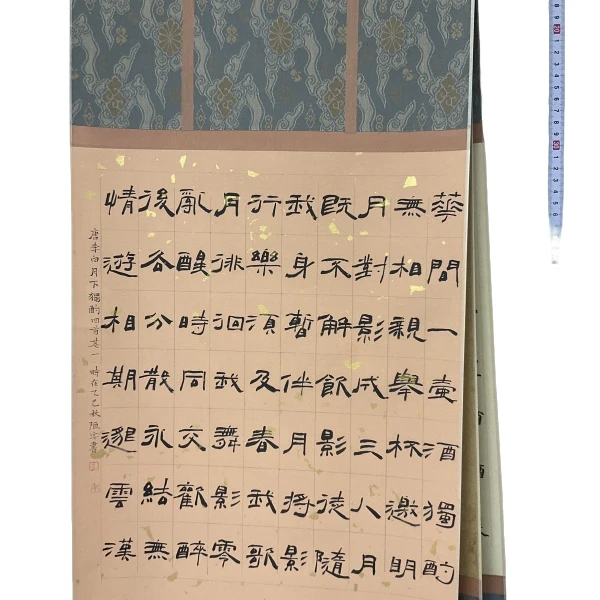 華間一壺酒獨酌
無相親舉杯邀明
月對影成三人月
既不解飲影徒隨
我身暫伴月將影
行樂須及春我歌
月徘徊我舞影零
亂醒時同交歡醉
後各分散永結無
情遊相期邈雲漢
唐李白月下獨酌四首其一 時在乙巳秋書